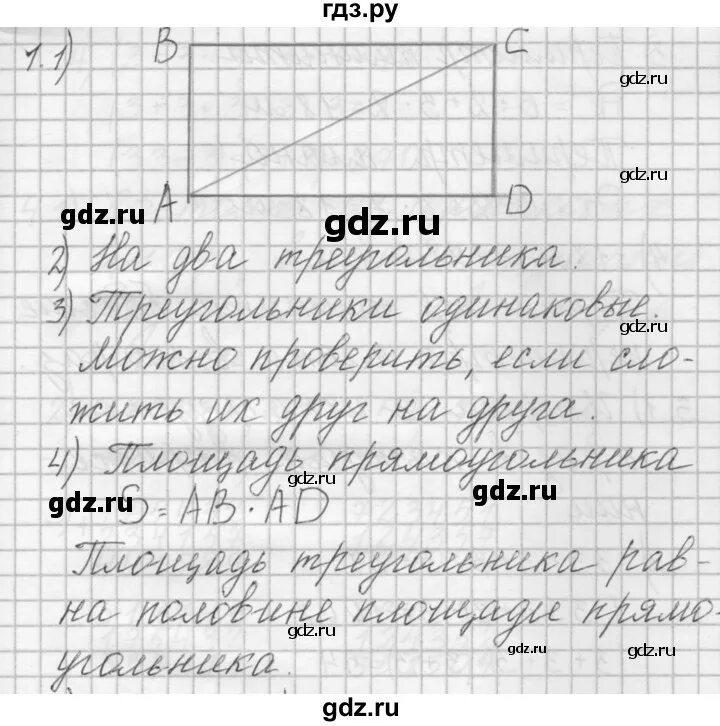 гдз.ру
1.1) B C
gdz.ru
gdz.ru
A D
gdz.ru
gdz.ru
2) На два треугольника.
3) Треугольники одинаковые.
gdz.ru
Можно проверить, если сло-
жить их друг на друга.
4) Площадь прямоугольника
gdz.ru
gdz.ru
gdz.ru
S = AB · AD
Площадь треугольника рав-
на половине площади прямо-
gdz.ru
gdz.ru
угольника.
gdz.ru